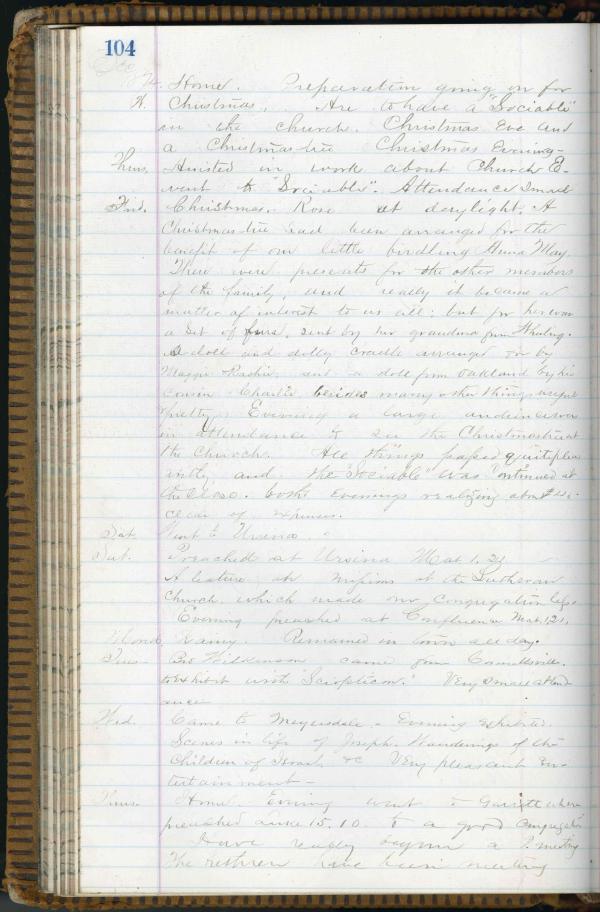 104
Home. Preparation going on for
Christmas. Are to have a "Sociable"
in the church. Christmas Eve and
a Christmas tree Christmas Evening—
Thurs. Assisted in work about Church E-
vent to "Sociable". Attendance small
Frid. Christmas. Rose at daylight. A
Christmas tree had been arranged for the
benefit of our little birdling Anna May.
There were presents for the other members
of the family, and really it became a
matter of interest to us all: but for her was
a set of furs, sent by her grandma from
a doll and dolly cradle by
Maggie a doll from Oakland by his
cousin Charlie besides many other things useful
& pretty. Evening a large audience was
in attendance to see the Christmas tree at
the Church. All things passed quite plea
santly and the "Sociable" was continued at
the close. both evenings realizing about
clear of expenses.
Sat. Went to Ursina.
Sat. Preached at Ursina Mat 1. 21
A lecture on missions at the Lutheran
Church which made our Congregation less.
Evening preached at Confluence Mat. 1, 21,
Mond. Rainy. Remained in town all day.
Tues. Bro Wilkinson came from Connellsville.
to exhibit with Sciopticon. Very small attend
ance
Wed. Came to Meyersdale. Evening exhibited
Scenes in life of Joseph. Wanderings of the
Children of Israel &c Very pleasant En-
tertainment—
Thurs. Home. Evening went to Garrett where
preached Luke 15. 10. to a good congregation
Have really begun a P. meeting
The brethren have been meeting